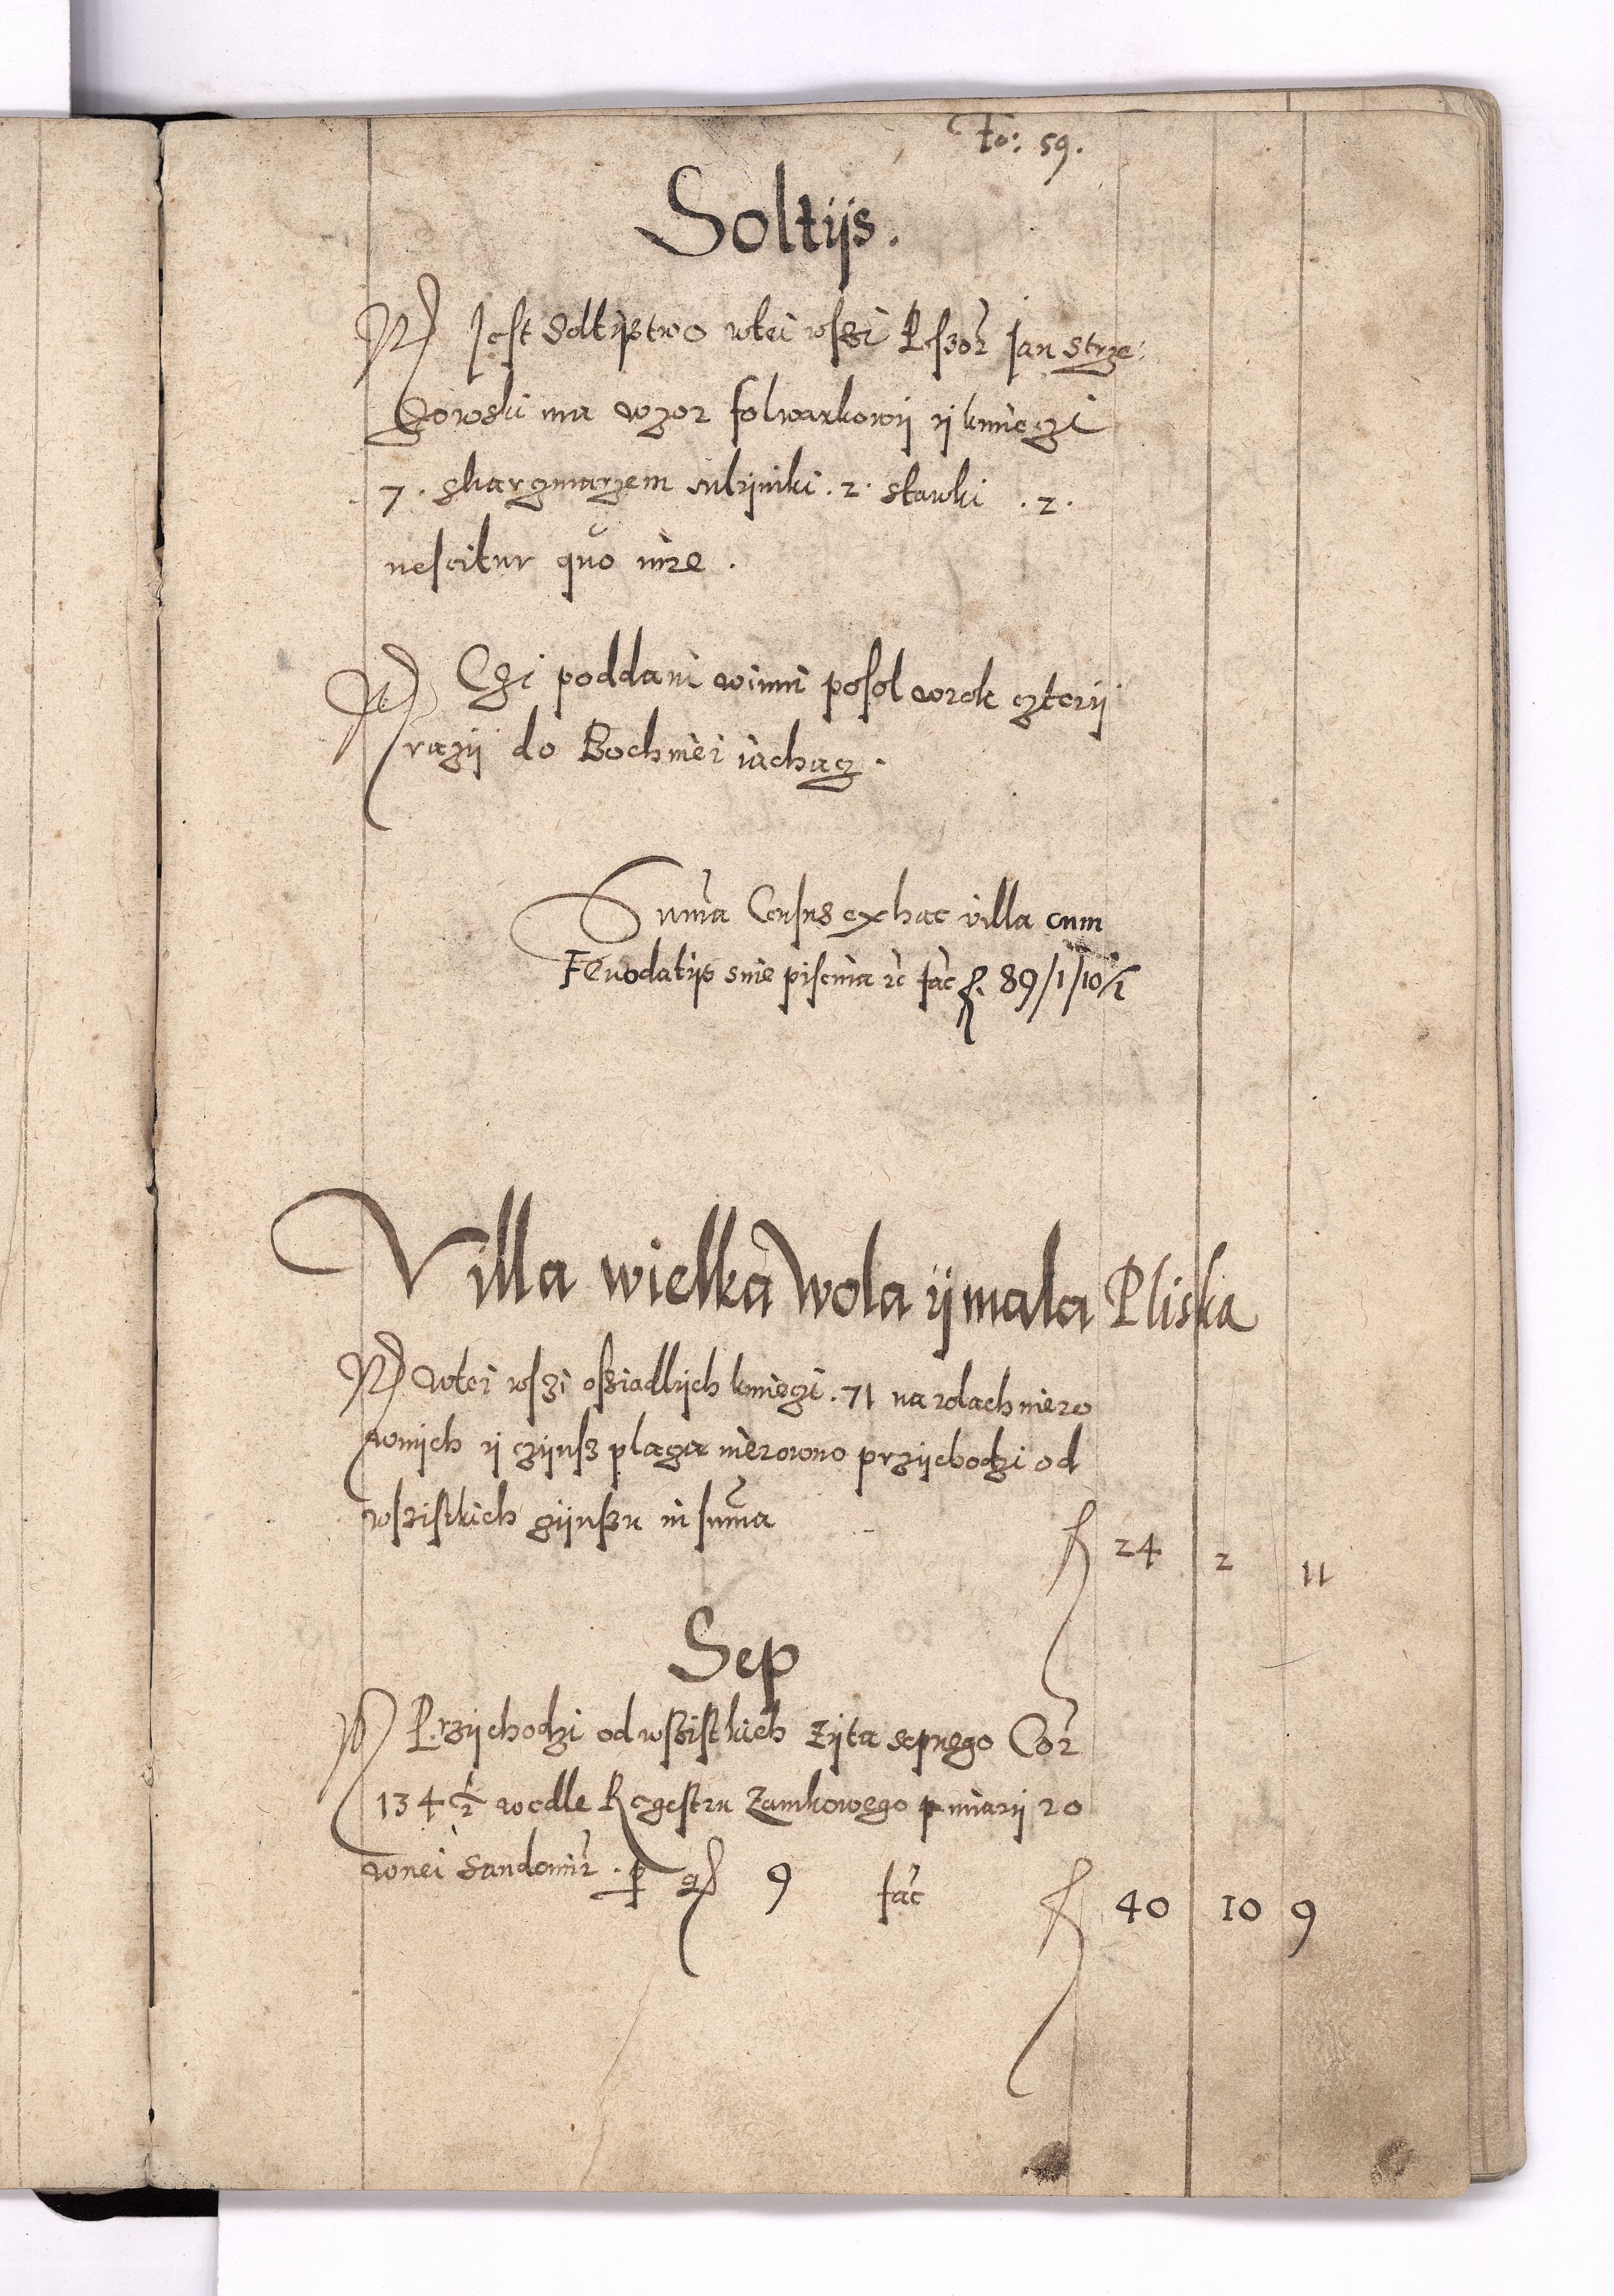 Fo: 59.
Soltijs.
Jest Soltijstwo wtei wszi Psзor Jan Strze:
gowski ma dwzor folwarkowij ij kmieczi
7. z karczmarzem mlijniki . 2 . stawki . 2 .
nescitur quo iure .
Czi poddani winni posol worok czterij
razij do Bochniei iachacz .
Suma Census ex hac villa cum
Feuodatijs sine piscina rc fac f. 89/1/10/½
Villa wielka wola ij mala Pliska
wtei wszi osziadlijch kmiczi . 71 na rolach niero
wnijch ij czijnsz placza nierowno przijchodzi od
wszistkich czijnszu in suma f 24 2 11
Sep
Przijchodzi od wszistkich zijta sepnego Cor
134 ½ wedle Regestru Zamkowego p miarij ro
wnei Sandomir . p gs 9 fac f 40 10 9